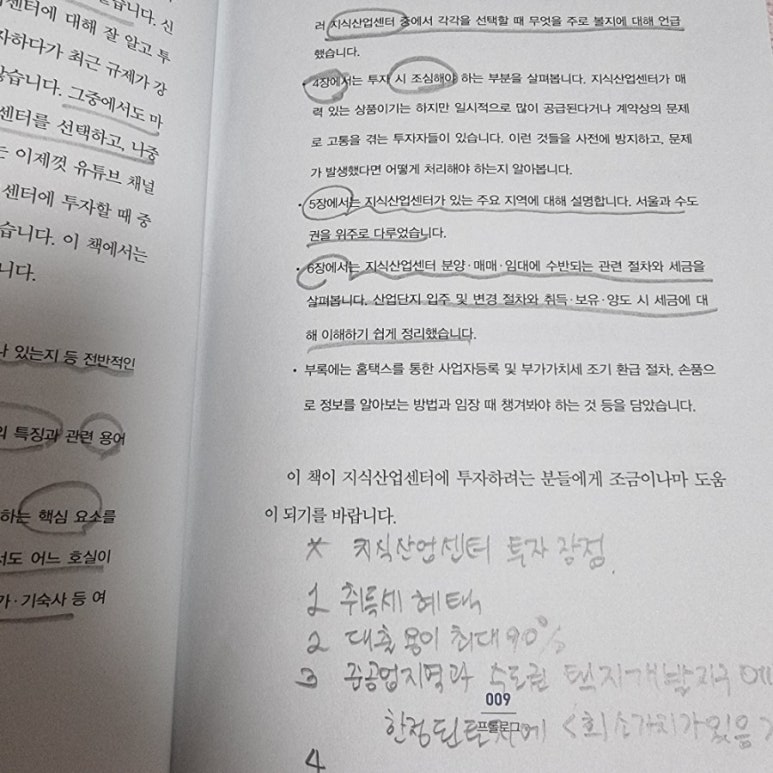 습니다. 신
센터에 대해 잘 알고 투
자하다가 최근 규제가 강
습니다. 그중에서도 마
센터를 선택하고, 나중
는 이제껏 유튜브 채널
센터에 투자할 때 중
습니다. 이 책에서는
니다.
나 있는지 등 전반적인
의 특징과 관련 용어
하는 핵심 요소를
서도 어느 호실이
가·기숙사 등 여
러 지식산업센터 중에서 각각을 선택할 때 무엇을 주로 볼지에 대해 언급
했습니다.
• 4장에서는 투자 시 조심해야 하는 부분을 살펴봅니다. 지식산업센터가 매
력 있는 상품이기는 하지만 일시적으로 많이 공급된다거나 계약상의 문제
로 고통을 겪는 투자자들이 있습니다. 이런 것들을 사전에 방지하고, 문제
가 발생했다면 어떻게 처리해야 하는지 알아봅니다.
• 5장에서는 지식산업센터가 있는 주요 지역에 대해 설명합니다. 서울과 수도
권을 위주로 다루었습니다.
• 6장에서는 지식산업센터 분양·매매·임대에 수반되는 관련 절차와 세금을
살펴봅니다. 산업단지 입주 및 변경 절차와 취득·보유·양도 시 세금에 대
해 이해하기 쉽게 정리했습니다.
• 부록에는 홈택스를 통한 사업자등록 및 부가가치세 조기 환급 절차, 손품으
로 정보를 알아보는 방법과 임장 때 챙겨봐야 하는 것 등을 담았습니다.
이 책이 지식산업센터에 투자하려는 분들에게 조금이나마 도움
이 되기를 바랍니다.
* 지식산업센터 투자 장점.
1 취득세 혜택
2 대출 용이 최대 90%
3 준공업지역과 수도권 택지개발지구에
한정된 토지에 <희소가치가 있음>
4
009
프롤로그